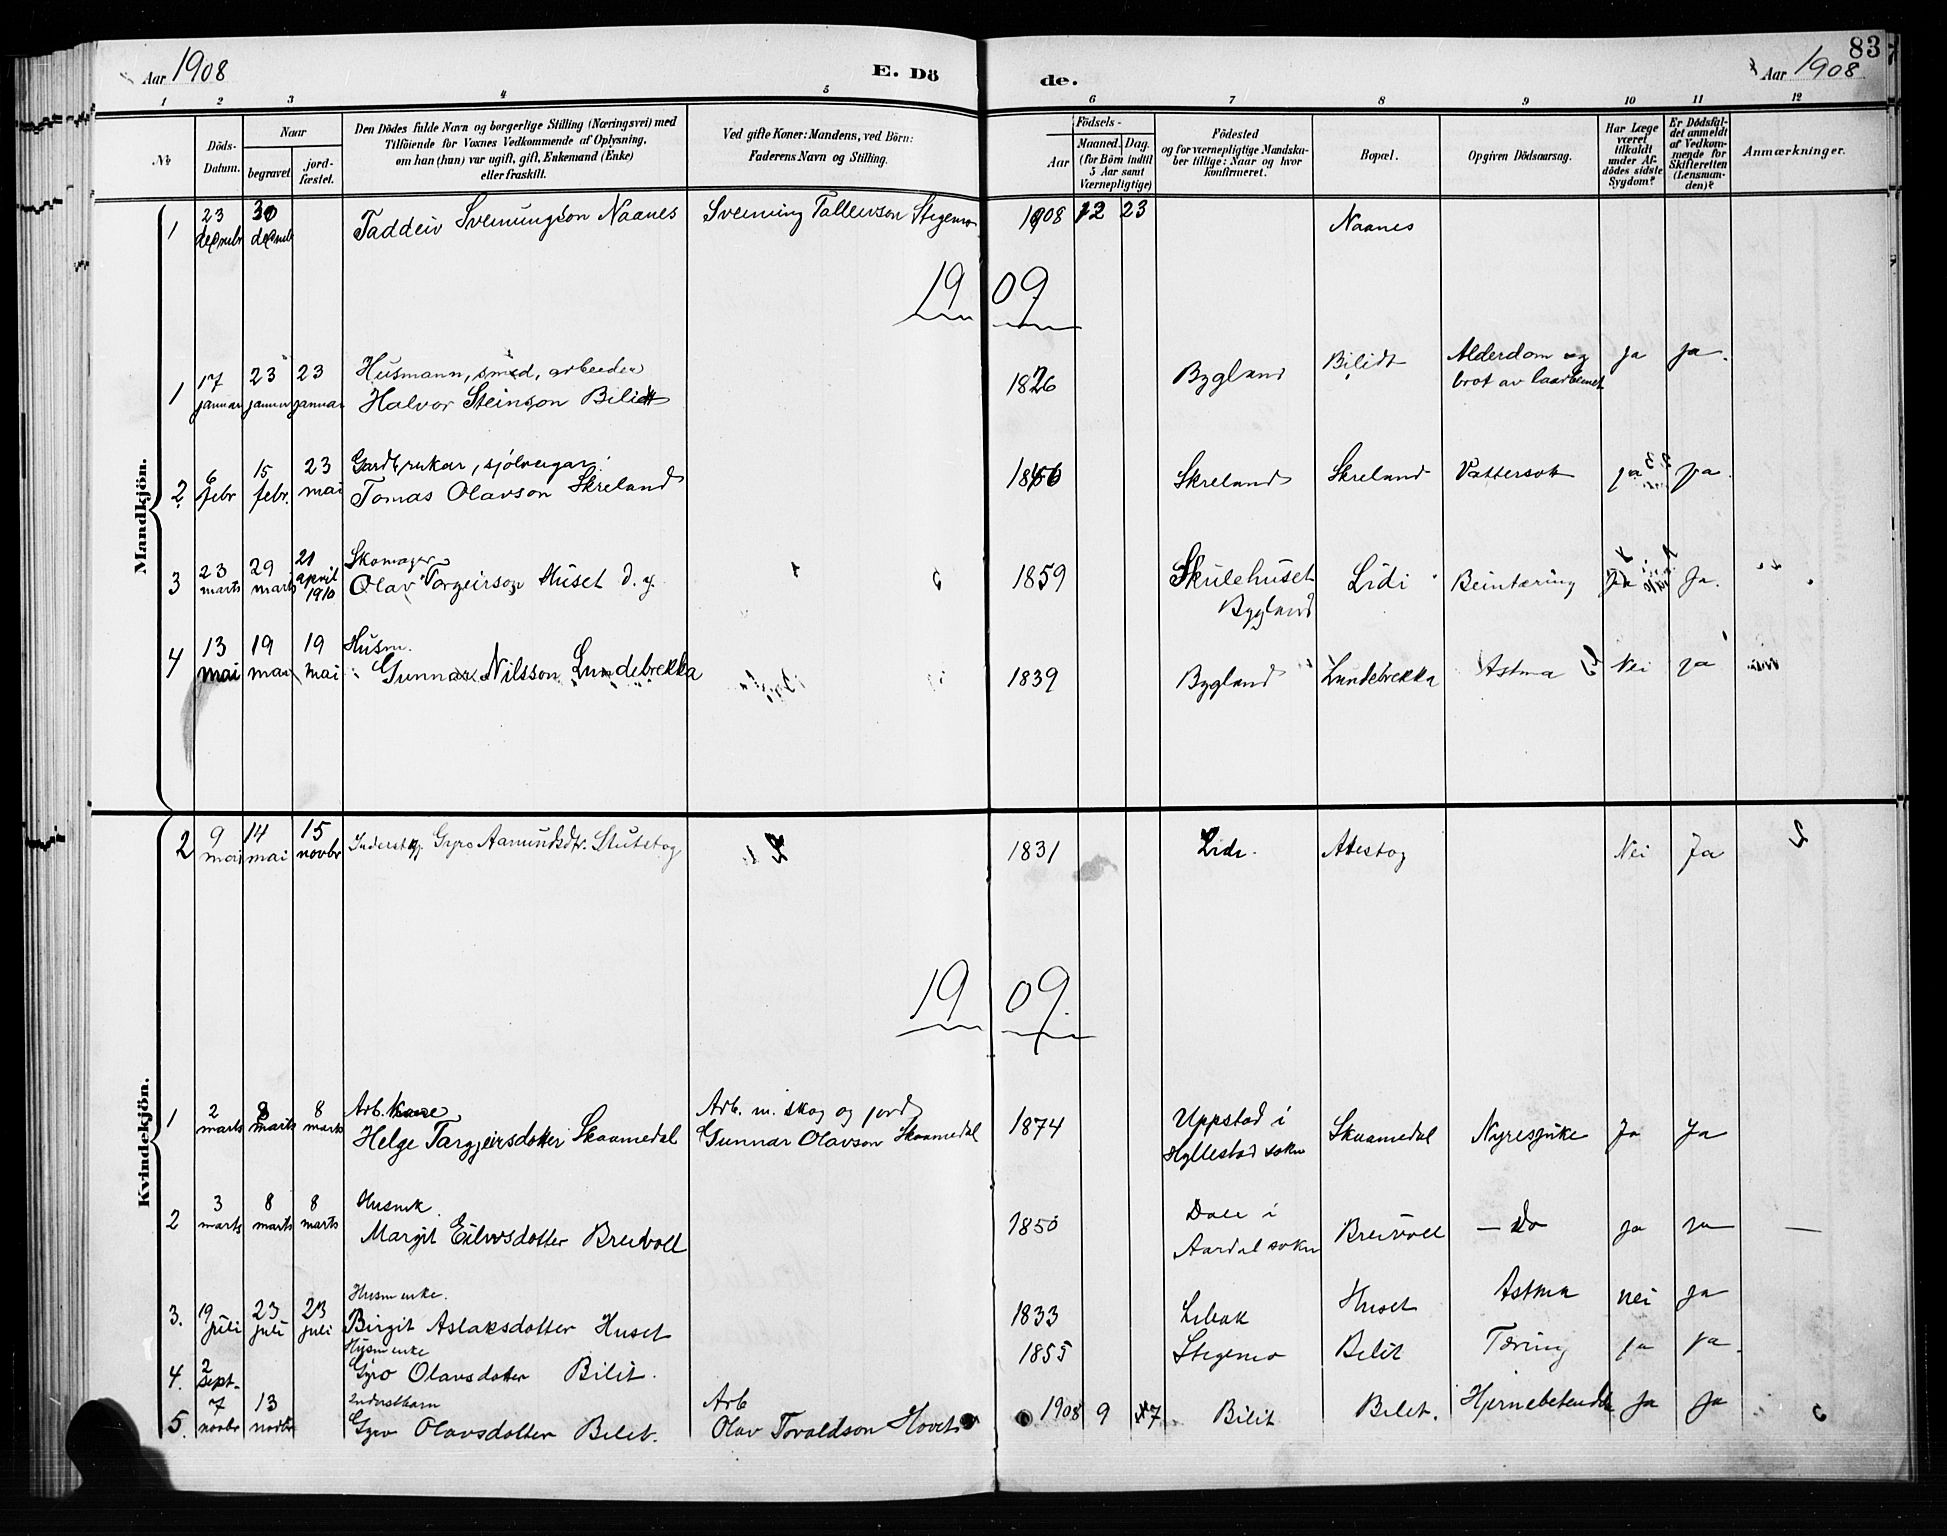 83
Aar 1908 E. Dö de. Aar 1908
1 2 3 4 5 6 7 8 9 10 11 12
№
Döds-Datum.
Naar
begravet.
jord-fæstet.
Den Dödes fulde Navn og borgerlige Stilling (Næringsvei) med
Tilföiende for Voxnes Vedkommende af Oplysning,
om han (hun) var ugift, gift, Enkemand (Enke)
eller fraskilt.
Ved gifte Koner: Mandens, ved Börn:
Faderens Navn og Stilling.
Födsels-
Aar
Maaned. Dag.
(for Börn indtil
5 Aar samt
Værnepligtige)
Födested
og for værnepligtige Mandska-
ber tillige: Naar og hvor
konfirmeret.
Bopæl.
Opgiven Dödsaarsag.
Har Læge
været
tilkaldt
under Af-
dödes sidste
Sygdom?
Er Dödsfal-
det anmeldt
af Vedkom-
mende for
Skifteretten
(Lensman-
den)?
Anmærkninger.
Mandkjön.
1 23 decmbr 30 decmbr Taddeiv Sveinungson Naanes Sveinung Tallevson Stegemo 1908 12 23 Naanes
1909
Husmann, smed, arbeider
1 17 januar 23 januar 23 januar Halvor Steinson Bilidt 1826 Bygland Bilidt Alderdom og ja ja.
brot av laarbeinet
Gardbrukar, sjölveigar
2. 6 febr 15 febr. 23 mai Tomas Olavson Skreland 1856 Skreland Skreland Vattersott ja ja.
Skomager
3 23 marts 29 marts 21 april 1910 Olav Torgeirson Huset d. y. 1859 Skulehuset Lidi Beintæring Ja Ja.
Bygland
Husm.
4 13 mai 19 mai 19 mai Gunnar Nilsson Lundebrekka 1839 Bygland Lundebrekka Astma Nei ja
Kvindekjön.
2 9 mai 14 mai 15 novbr Inderst Gyro Aamundsdtr. Stutstog 1831 Lidi. Nei Ja
1909
Arb. Kone Arb. m. skog og jord
1 2 marts 8 marts 8 marts Helge Targjeirsdotter Skaamedal Gunnar Olavson Skaamedal 1874 Uppstad i Skaamedal Nyresjuke Ja Ja
Hyllestad sokn
Husmk.
2 3 marts 8 marts 8 marts Margit Eilivsdotter Breivoll 1850 Dale i Breivoll — Do ja ja —
Aardal sokn
Husm enke.
3. 19 juli 23 juli 23 juli Birgit Aslaksdotter Huset 1833 Libak Huset Astma nei ja
Husm enke
4. 2 sept. Gyro Olavsdotter Bilit. 1855 Stegemo Bilit Tæring ja ja.
Inderstbarn Arb
5. 7 novbr 13 novbr Gyro Olavsdotter Bilit. Olav Toraldson Hovet 1908 9 7 Bilit Bilit. Hjernebetendt Ja Ja